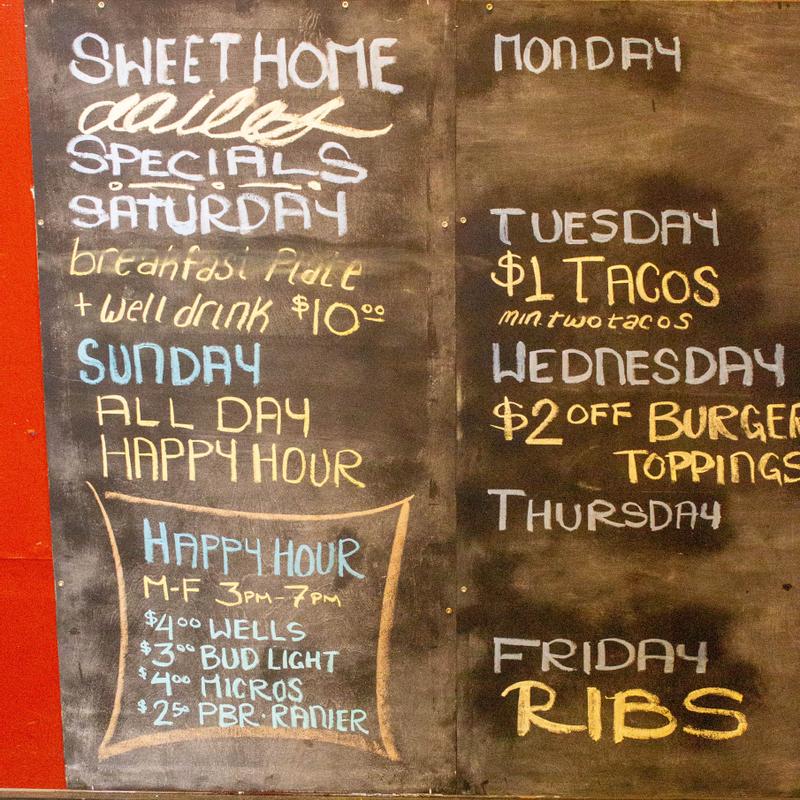 SWEET HOME
dailes
SPECIALS
SATURDAY
breakfast Plate
+ well drink $10.00
SUNDAY
ALL DAY
HAPPY HOUR
HAPPY HOUR
M-F 3PM-7PM
$4.00 WELLS
$3.00 BUD LIGHT
$4.00 MICROS
$2.50 PBR·RANIER
MONDAY
TUESDAY
$1 TACOS
min. two tacos
WEDNESDAY
$2 OFF BURGER
TOPPINGS
THURSDAY
FRIDAY
RIBS